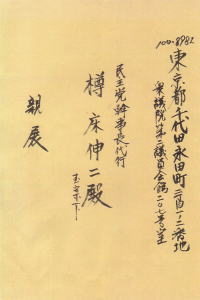 100-8982
東京都千代田永田町二丁目一ノ二番地
衆議院第二議員会館二〇七号室
民主党幹事長代行
樽床伸二殿
親展